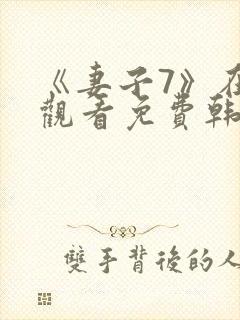 《妻子7》在
觀看免費韩
雙手背後的人